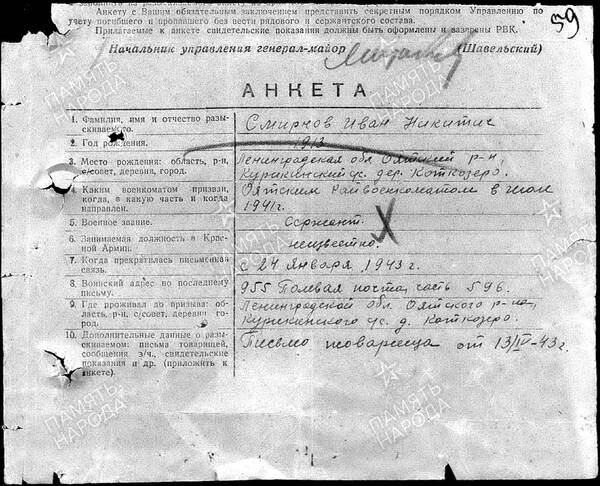 Анкету с Вашим обязательным заключением представить секретным порядком Управлению по
учету погибшего и пропавшего без вести рядового и сержантского состава.
Прилагаемые к анкете свидетельские показания должны быть оформлены и заверены РВК.
59
Начальник управления генерал-майор (Шавельский)
АНКЕТА
1. Фамилия, имя и отчество разы-
скиваемого.
Смирнов Иван Никитис
2. Год рождения.
1913
3. Место рождения: область, р-н,
с/совет, деревня, город.
Ленинградская обл Оятский р-н,
Курикинский ус. дер. Коткозеро.
4. Каким военкоматом призван,
когда, в какую часть и когда
направлен.
Оятским Райвоенкоматом в июле
1941г.
5. Военное звание.
Сержант.
6. Занимаемая должность в Крас-
ной Армии.
неизвестно.
7. Когда прекратилась письменная
связь.
с 24 Января 1943 г.
8. Воинский адрес по последнему
письму.
955 Полевая почта, часть 596.
9. Где проживал до призыва: об-
ласть, р-н, с/совет, деревня, го-
род.
Ленинградской обл. Оятского р-на,
Курикинского ус. д. Коткозеро.
10. Дополнительные данные о разы-
скиваемом: письма товарищей,
сообщения з/ч., свидетельские
показания и др. (приложить к
анкете).
Письмо товарища от 13/IV-43 г.
ПАМЯТЬ
НАРОДА